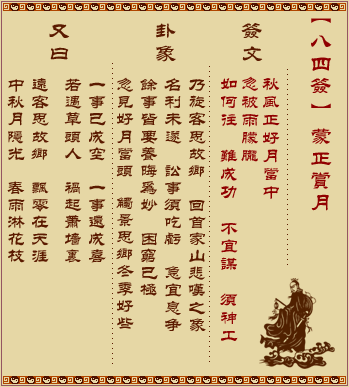 【八四簽】 蒙正賞月
簽文
秋風正好月當中
忽被雨朦朧
如何往 難成功 不宜謀 須神工
卦象
乃旋客思故鄉 回首家山悲嘆之象
名利未遂 訟事須吃虧 急宜息爭
餘事皆要養晦爲妙 困窮已極
忽見好月當頭 觸景思鄉冬季好些
又曰
一事已成空 一事還成喜
若遇草頭人 禍起蕭墻裏
遠客思故鄉 飄零在天涯
中秋月隱光 春雨淋花枝